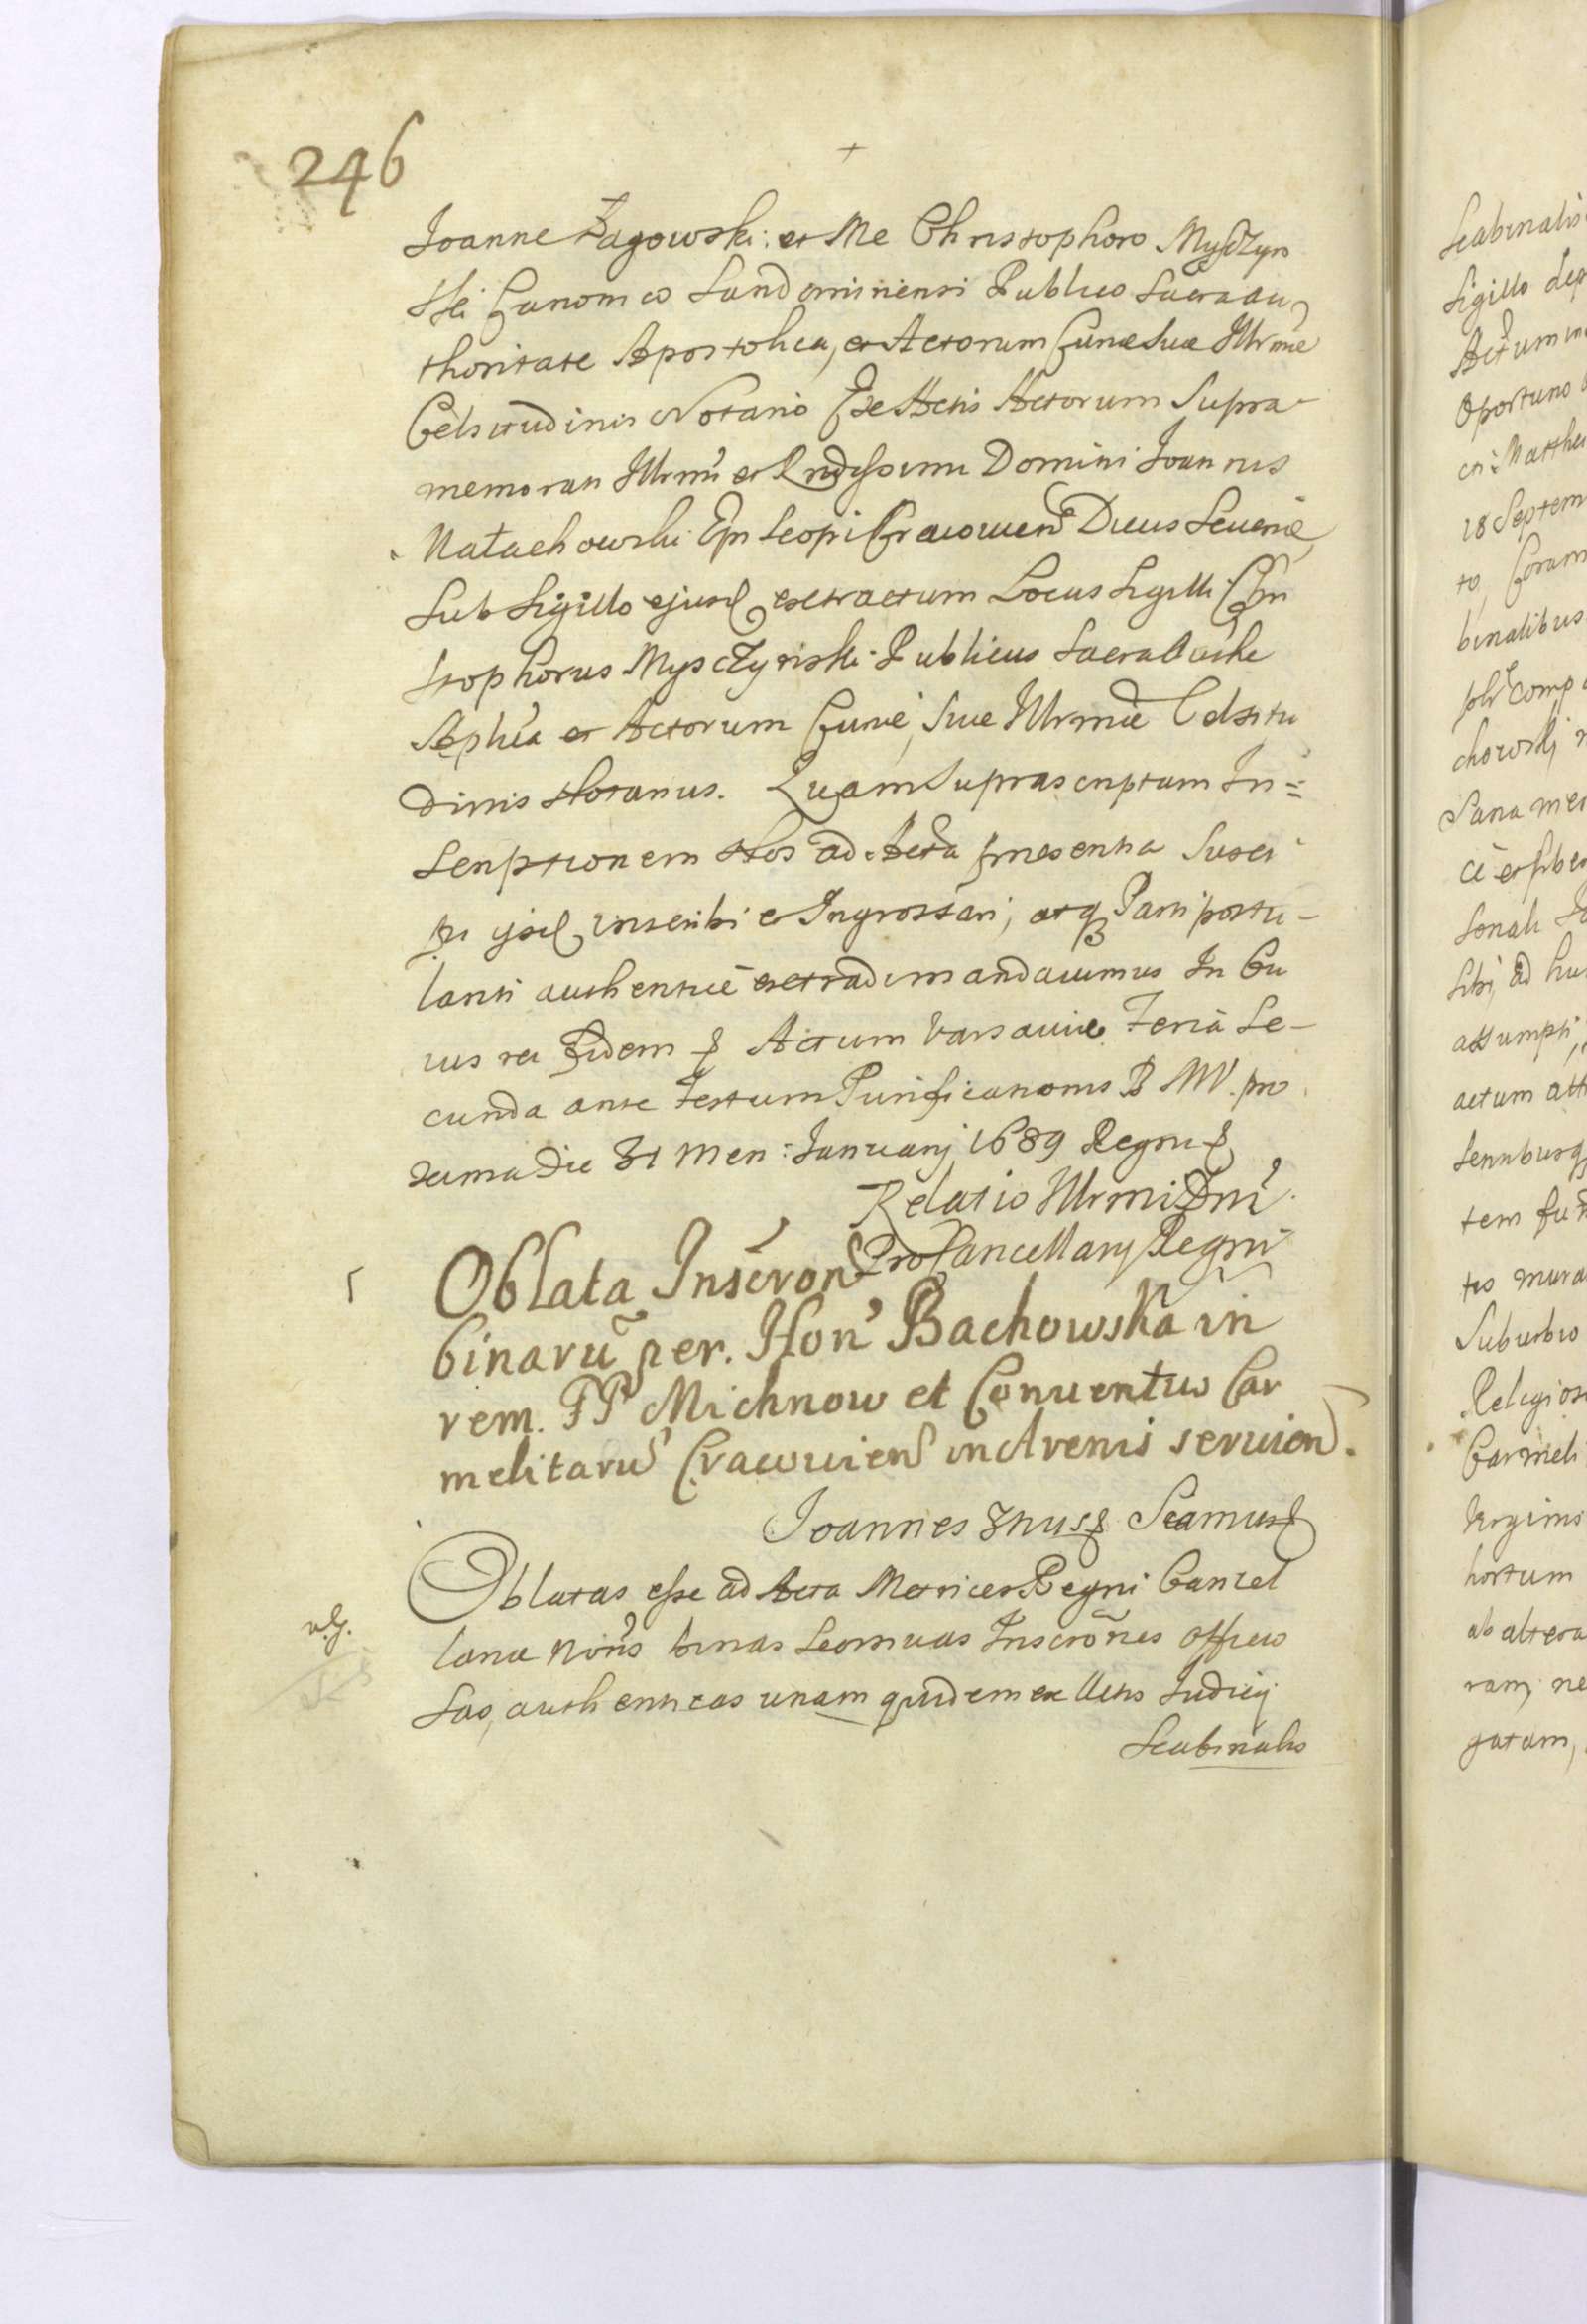 246
Joanne Żagowski: et Me Christophoro Myſczyn
ski Canonico Sandomiriensi Publico Sacra au
thoritate Apostolica, et Actorum Curiæ Suæ Illrmæ
Celsitudinis Notario Ex Actis Actorum Supra-
memorati Illrmi et Rndissimi Domini Joannis
Małachowski Epi Leopi Cracouien Ducis Seueriæ
Sub Sigillo ejusd extractum Locus Sigilli Chri
stophorus Mysczynski Publicus Sacra Authe
Aplica et Actorum Curiæ Suæ Illrmæ Celsitu
dinis Notarius. Quam Suprascriptam In=
scriptionem Nos ad Acta præsentia Susci-
pi ijsd inscribi et Ingrossari, atq Parti postu-
lanti authenticè extradi mandauimus In Cu
ius rei Fidem Actum Varsauiæ Feria Se-
cunda ante Festum Purificationis B M V. pro
xima Die 31 Men: Januarij 1689 Regni
Relatio Illrmi Dni
ProCancellarij Regni
Oblata Inscron
binarũ per. Hon Bachowska in
rem. PP Michnow et Conuentus Car
melitarũ Cracouien in Arenis seruien.
Joannes 3tius Seamus
Oblatas esse ad Acta Metrices Regni Cancel
lariæ Nrãs binas Inscrones officio
sas, authenticas unam quidem ex Actis Judicij
Scabinalis
Scabinalis
Sigillo
Actum in
Oportuno
cri: Matthe
18 Septem
to, Coram
binalibus
comp
chowskj
Sana men
cè et
sonali
sibi, ad hu
assumpti,
actum att
tem
tis mura
Suburbio
Religios
Carmeli
Virginis
hortum
ab altera
ram, ne
gatam,